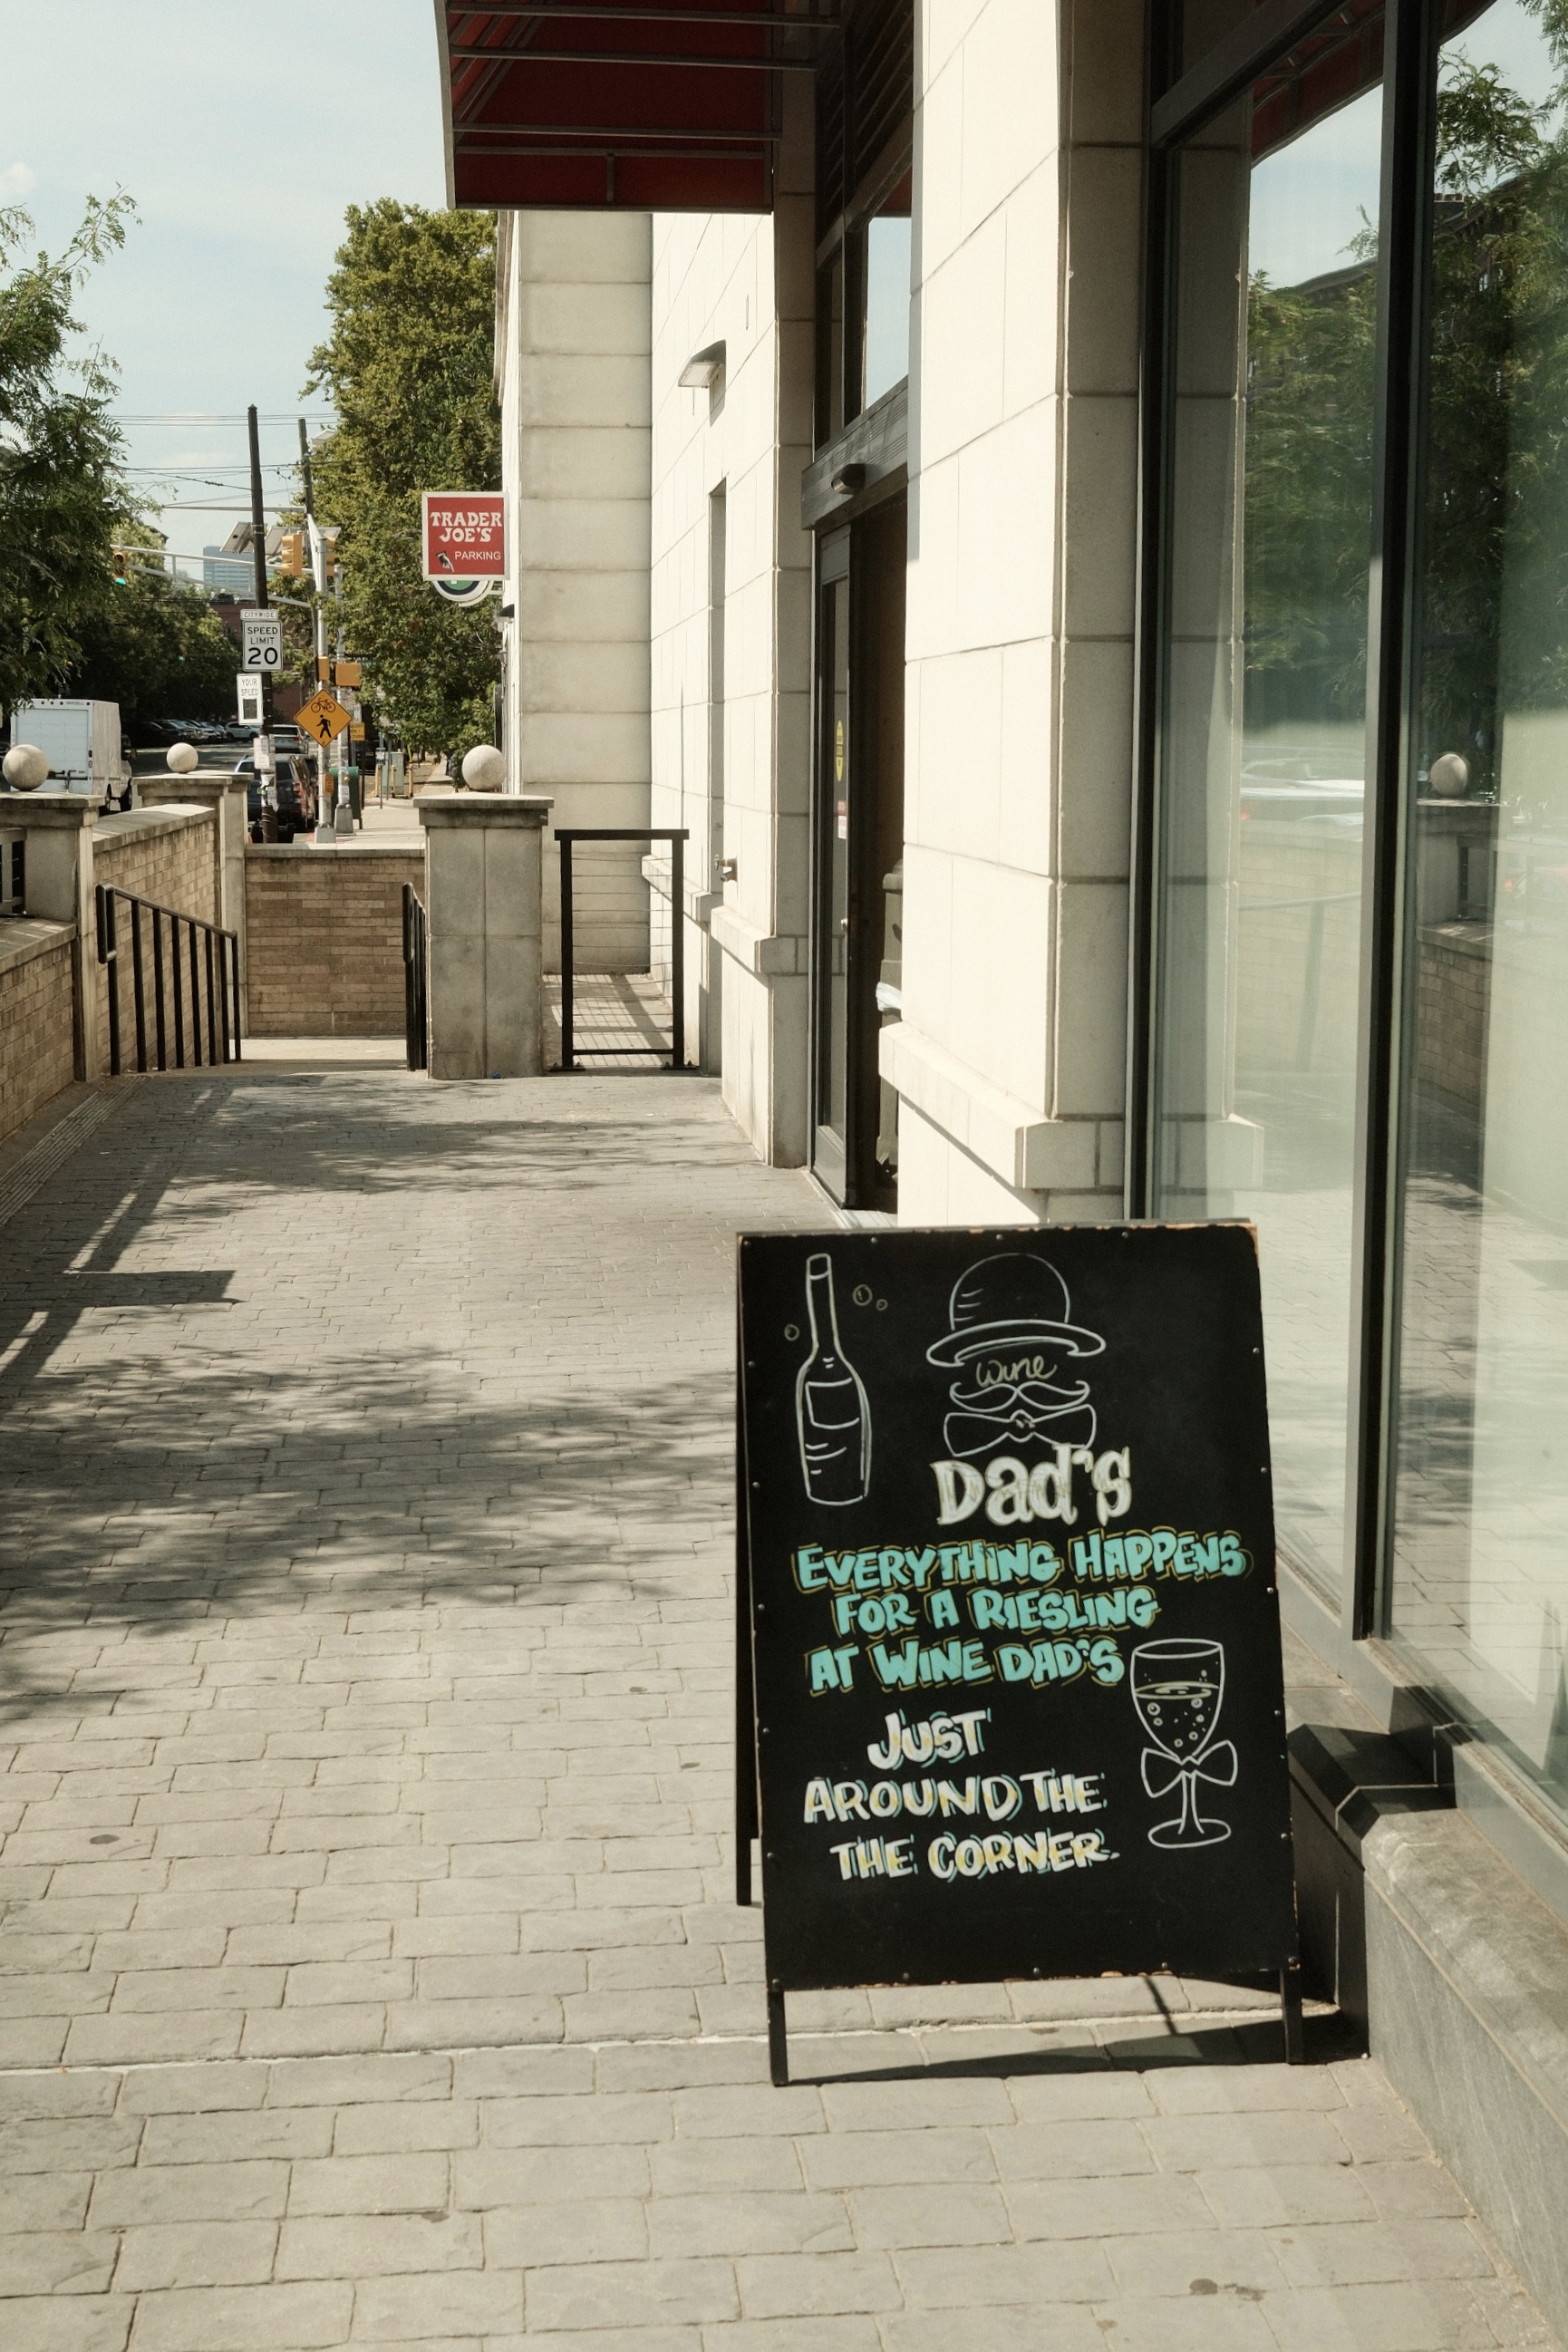 TRADER
JOE'S
PARKING
CITYWIDE
SPEED
LIMIT
20
YOUR
SPEED
wine
Dad's
EVERYTHING HAPPENS
FOR A RIESLING
AT WINE DAD'S
JUST
AROUND THE
THE CORNER.